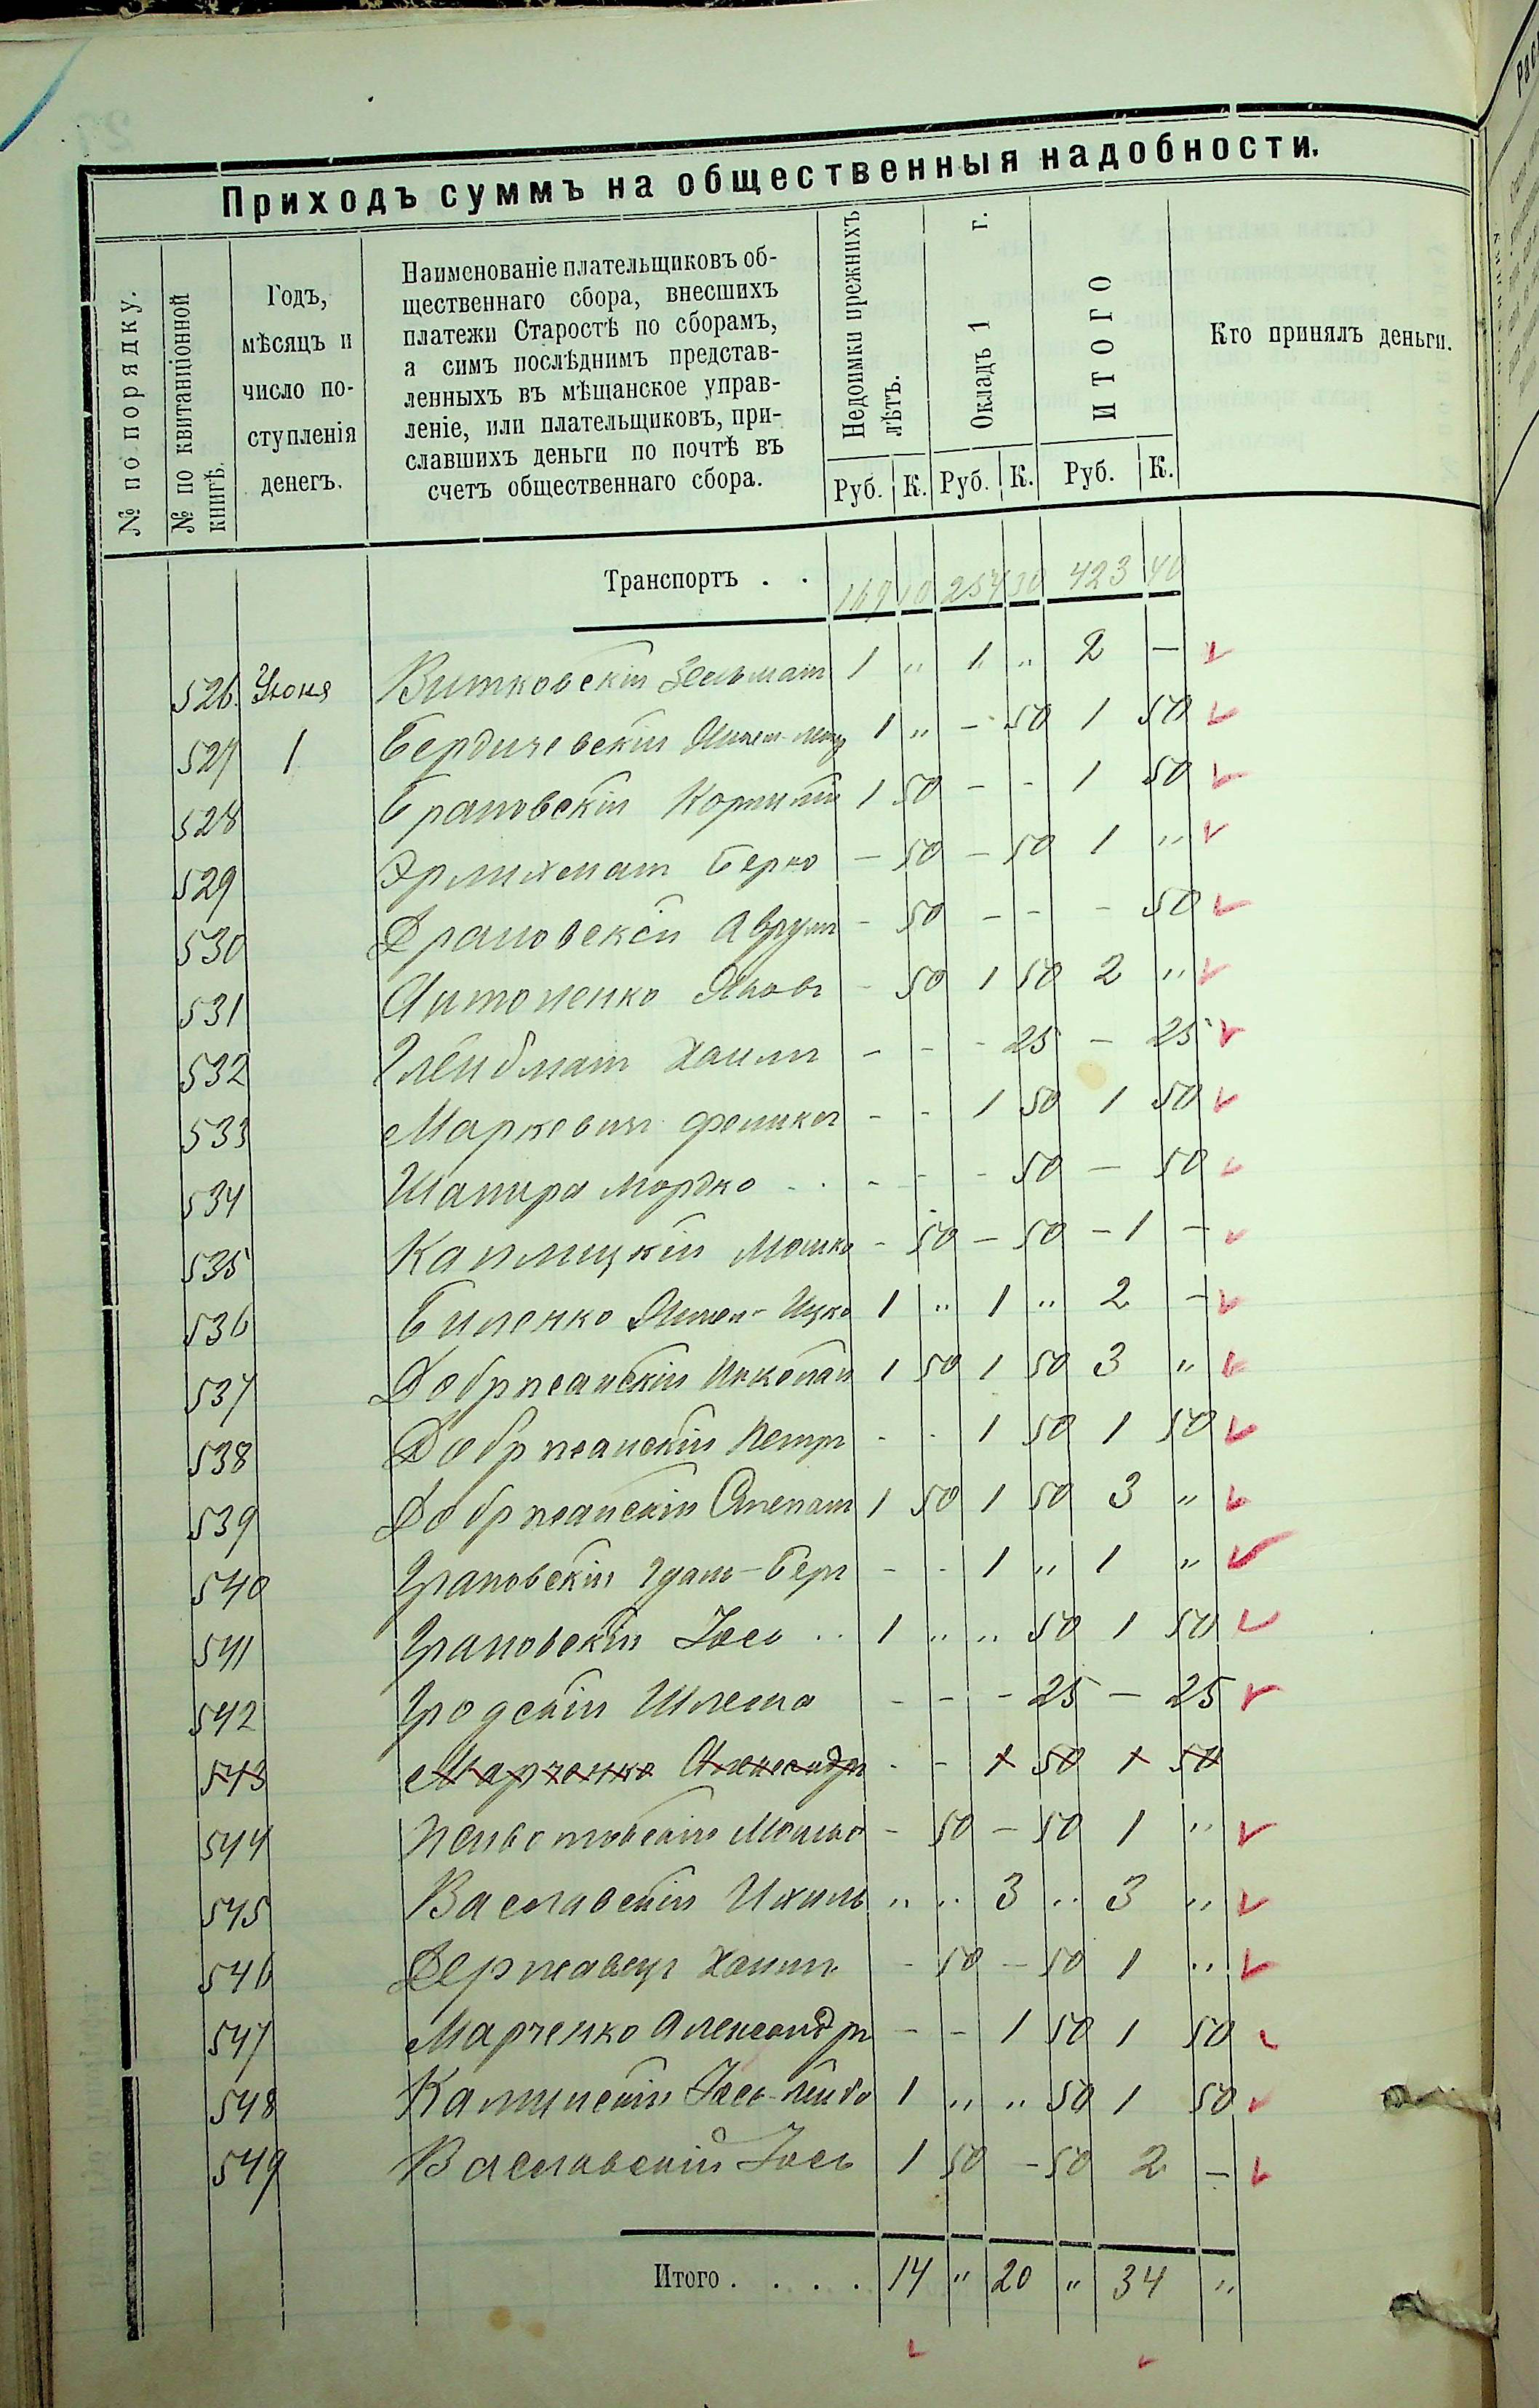 Приходъ суммъ на общественныя надобности.
№ по порядку.
№ по квитанціонной книгѣ.
Годъ,
мѣсяцъ и
число по-
ступленія
денегъ.
Наименованіе плательщиковъ об-
щественнаго сбора, внесшихъ
платежи Старостѣ по сборамъ,
а симъ послѣднимъ представ-
ленныхъ въ мѣщанское управ-
леніе, или плательщиковъ, при-
славшихъ деньги по почтѣ въ
счетъ общественнаго сбора.
Недоимки прежнихъ лѣтъ.
Окладъ 1 г.
ИТОГО
Кто принялъ деньги.
Руб. К. Руб. К. Руб. К.
Транспортъ . . 169 10 254 30 423 40
526 Іюня Витковскій Зельманъ 1 " 1 " 2 —
527 1 Бердичевскій 1 " - 50 1 50
528 Брановскій Корнилій 1 50 - - 1 50
529 Эрлихманъ Берко — 50 — 50 1 "
530 Драновскій Аврумъ - 50 - - - 50
531 Антоненко Яковъ - 50 1 50 2 "
532 Глейбманъ Хаимъ - - - 25 — 25
533 Маркевичъ Феликсъ - - 1 50 1 50
534 Шапира Мордко . . - - - 50 — 50
535 Каплицкій Мошко - 50 — 50 - 1 —
536 Биленко Ицко 1 " 1 " 2 -
537 Добржанскій Николай 1 50 1 50 3 "
538 Добржанскій Петръ - - 1 50 1 50
539 Добржанскій Степанъ 1 50 1 50 3 "
540 Грановскій Беръ - - 1 " 1 "
541 Грановскій Іось . . 1 " " 50 1 50
542 Гродскій Шлема - - - 25 — 25
543 Марченко Александръ - - 1 50 1 50
544 Мошко - 50 — 50 1 "
545 Ваславскій Ихиль " " 3 " 3 "
546 Державецъ Хаимъ - 50 — 50 1 "
547 Марченко Александръ - - 1 50 1 50
548 Іось-Лейба 1 " " 50 1 50
549 Ваславскій Іось 1 50 - 50 2 —
Итого . . . . 14 " 20 " 34 "